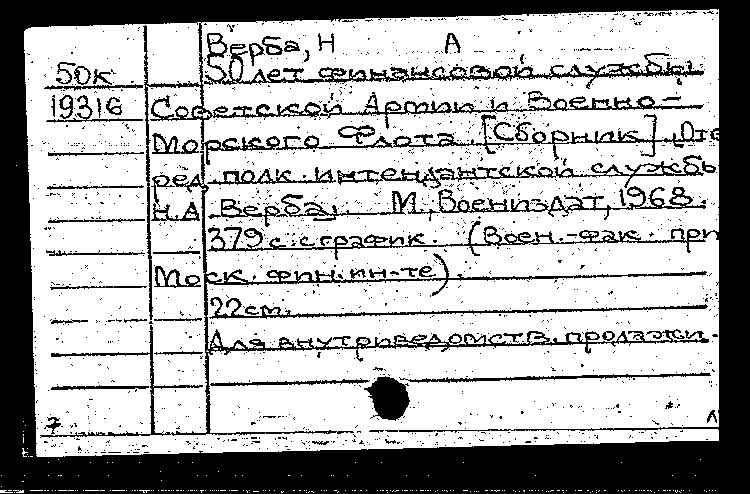 Верба, Н А
50К 50 лет финансовой службы
19316 Советской Армии и Военно-
Морского Флота. [Сборник]. Отв
ред. полк. интендантской службы
Н.А. Верба. М., Воениздат, 1968.
379 с. с график. (Воен.-фак. при
Моск. фин. ин-те).
22 см.
Для внутриведомств. продажи.
7